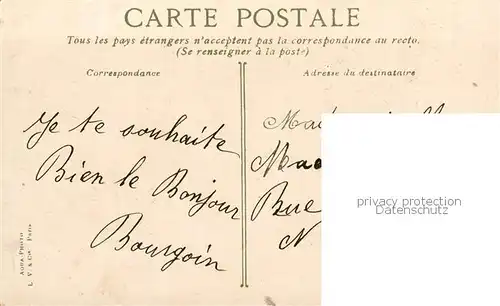 CARTE POSTALE
Tous les pays étrangers n'acceptent pas la correspondance au recto.
(Se renseigner à la poste)
Correspondance
Adresse du destinataire
Je te souhaite
Bien le Bonjour
Bourgoin
Mad
Mad
Rue
N
privacy protection
Datenschutz
AQUA-PHOTO
L. V. & Cie. Paris